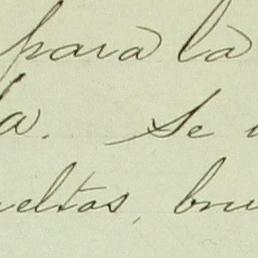 para la
a. Se
ueltos, bru